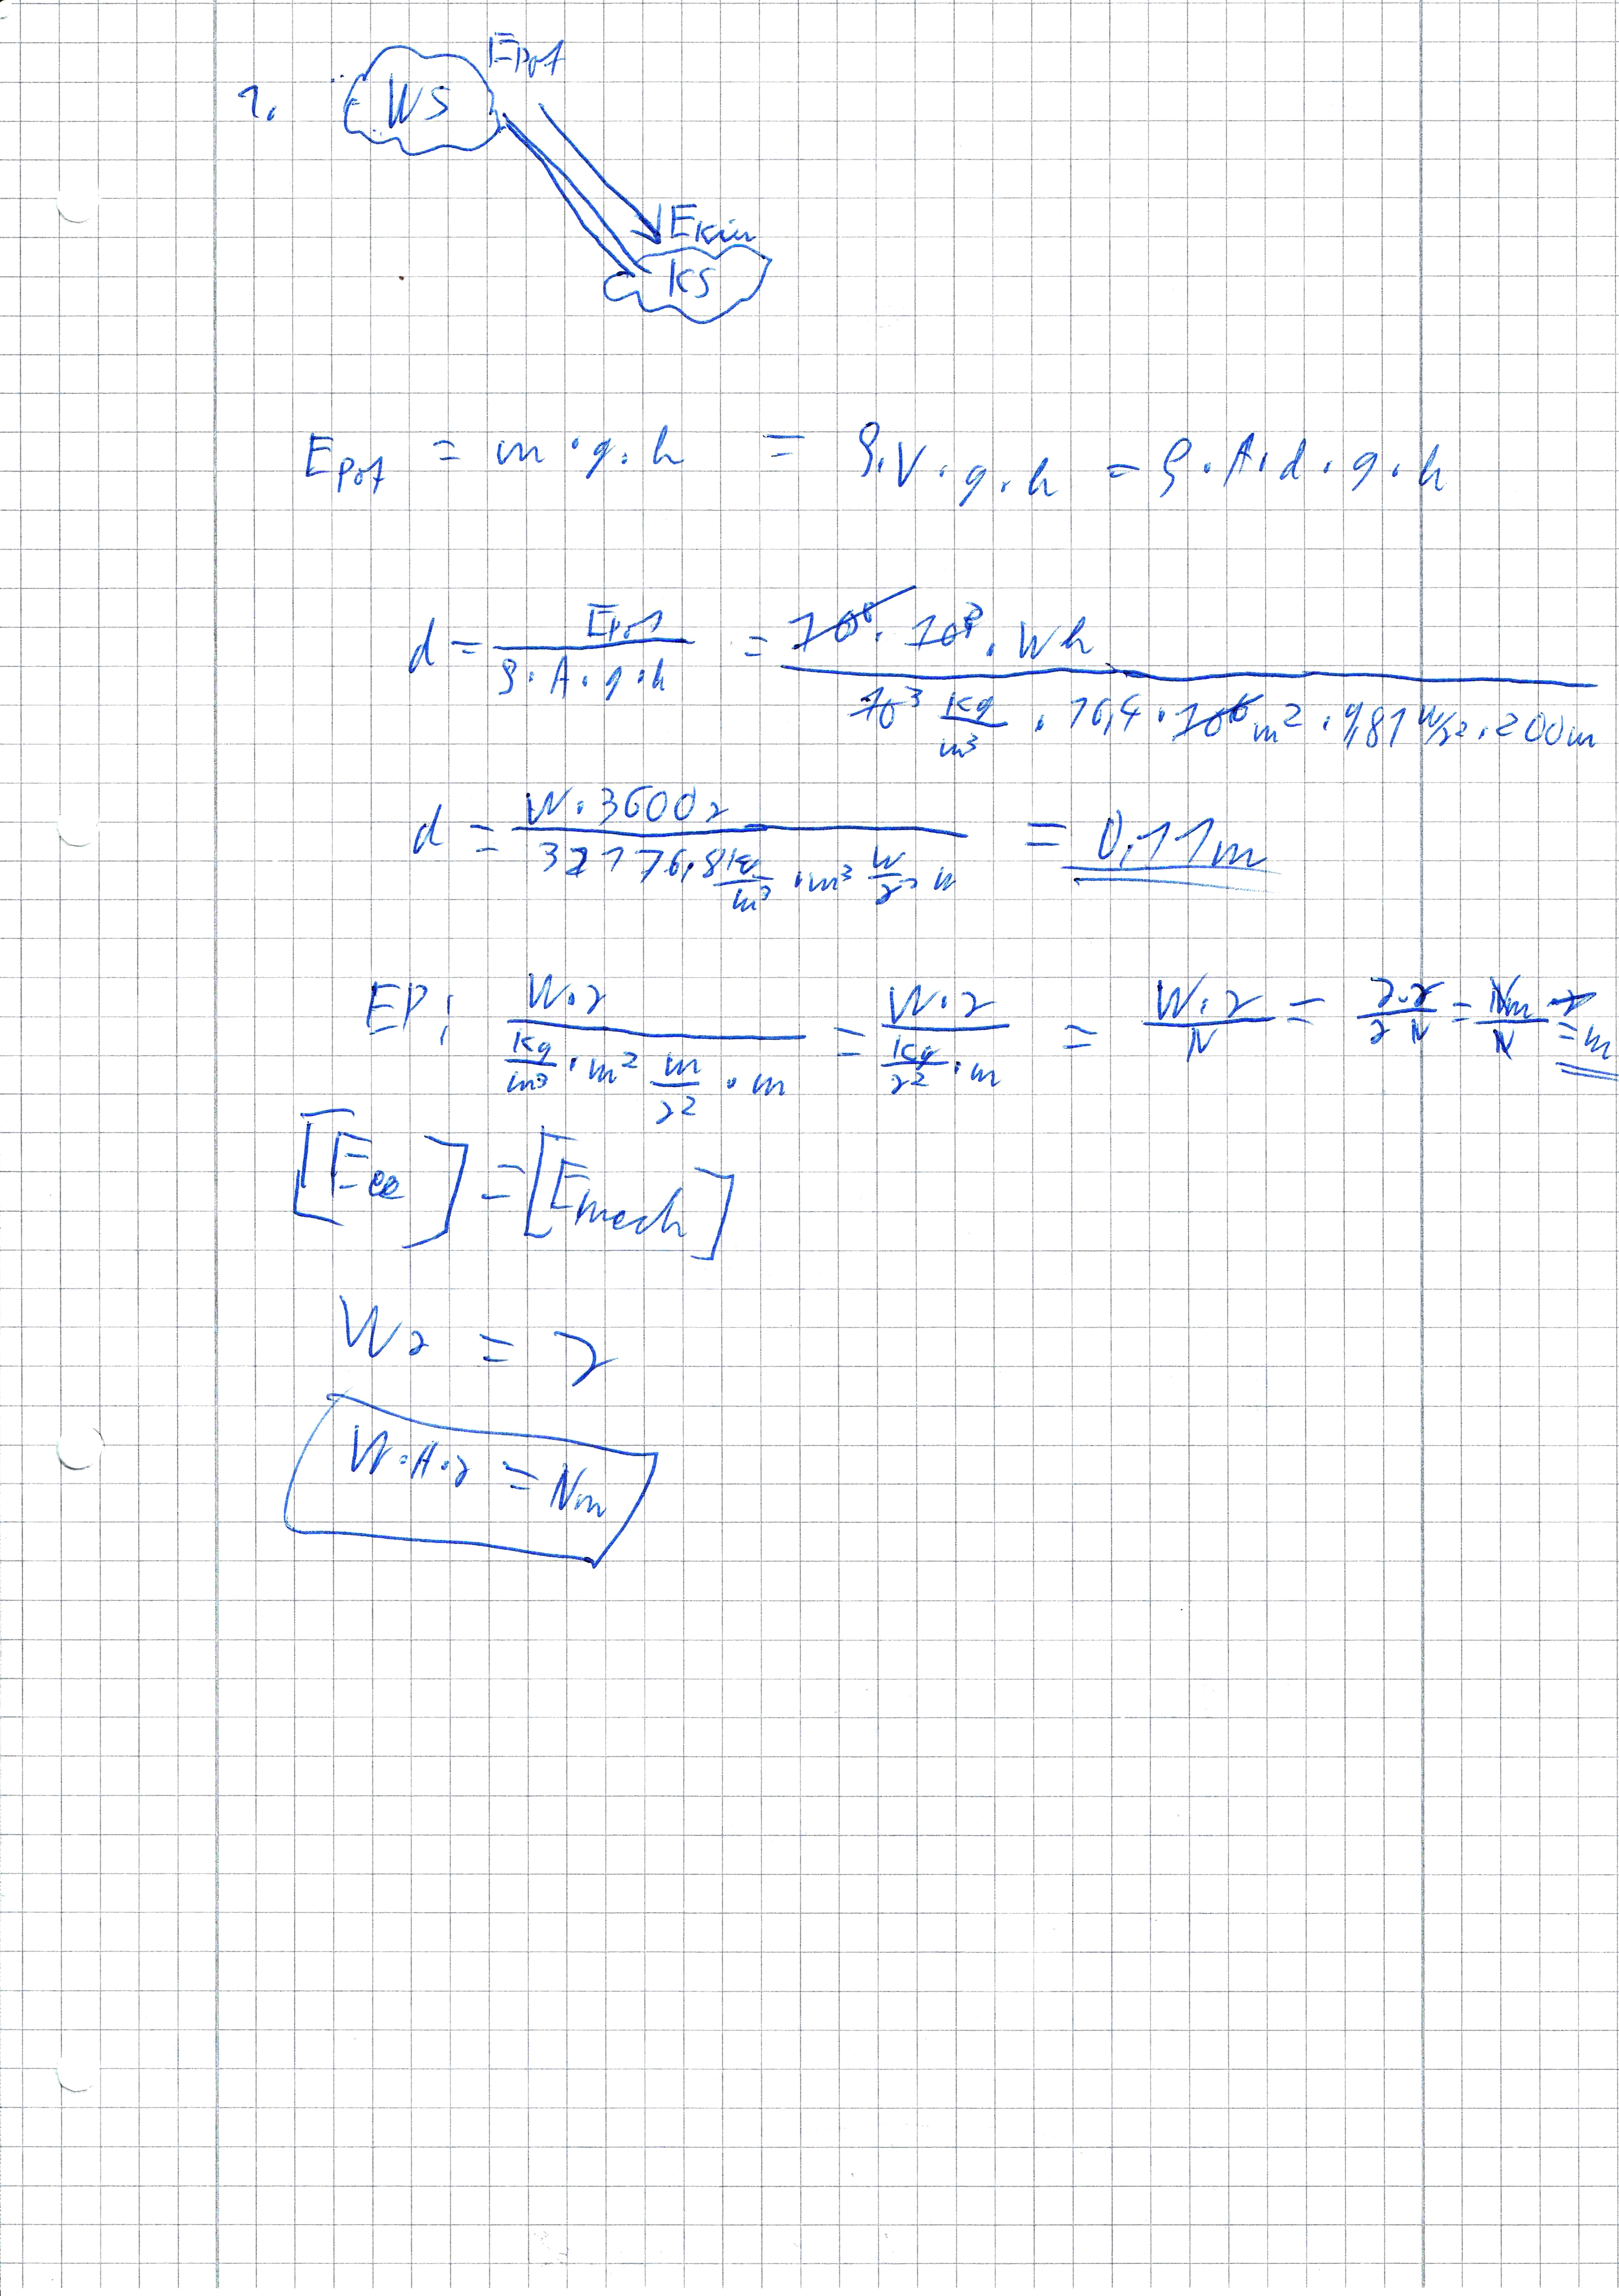 1. WS Epot
Ekin
KS
Epot = m · g · h = ρ · V · g · h = ρ · A · d · g · h
d = Epot / (ρ · A · g · h) = 10⁶ · 10³ · Wh / (10³ kg/m³ · 16,4 · 10⁶ m² · 9,81 m/s² · 200m)
d = W · 3600s / (32176,8 kg/m³ · m³ m/s² m) = 0,11m
EP: W·s / (kg/m³ · m² m/s² · m) = W·s / (kg/s² · m) = W·s / N = J·s / s N = Nm / N = m
[Eel] = [Emech]
Ws = J
V·A·s = Nm